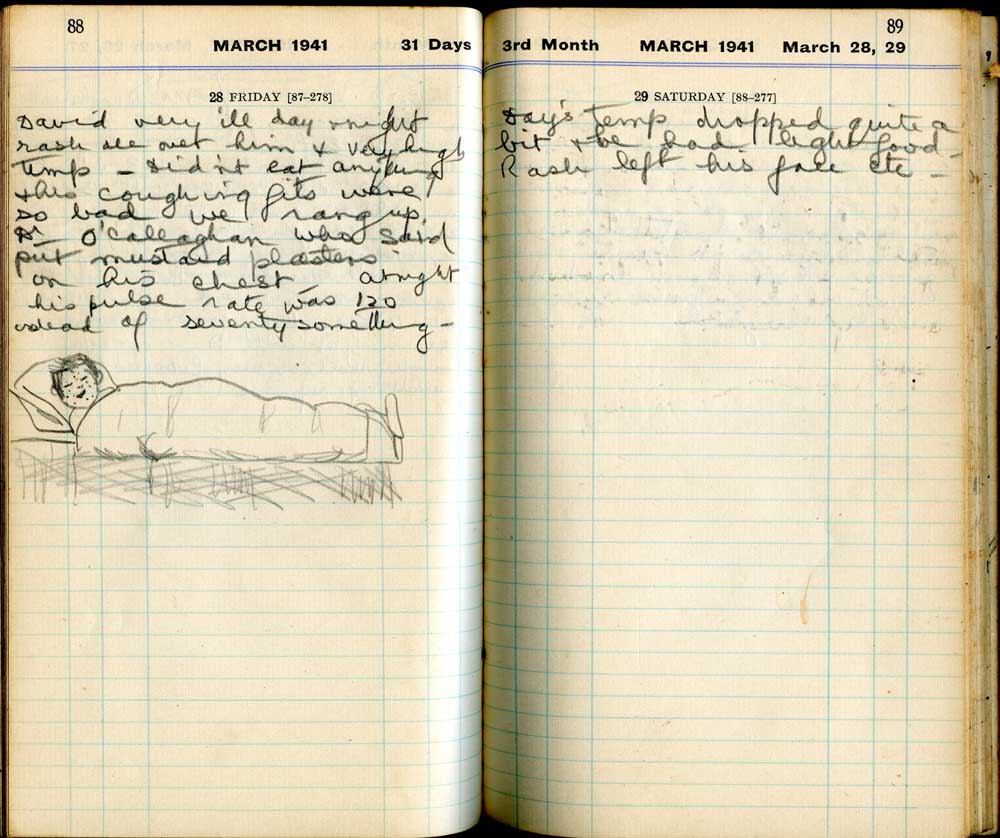 88
MARCH 1941 31 Days
28 FRIDAY [87–278]
David very ill day & night
rash all over him & very high
Temp – Didn't eat anything
& his coughing fits were
so bad we rang up
Dr O'Callaghan who said
put mustard plasters
on his chest – at night
his pulse rate was 120
instead of seventy something –
89
3rd Month MARCH 1941 March 28, 29
29 SATURDAY [88–277]
Day's Temp dropped quite a
bit & he had light food –
Rash left his face etc –